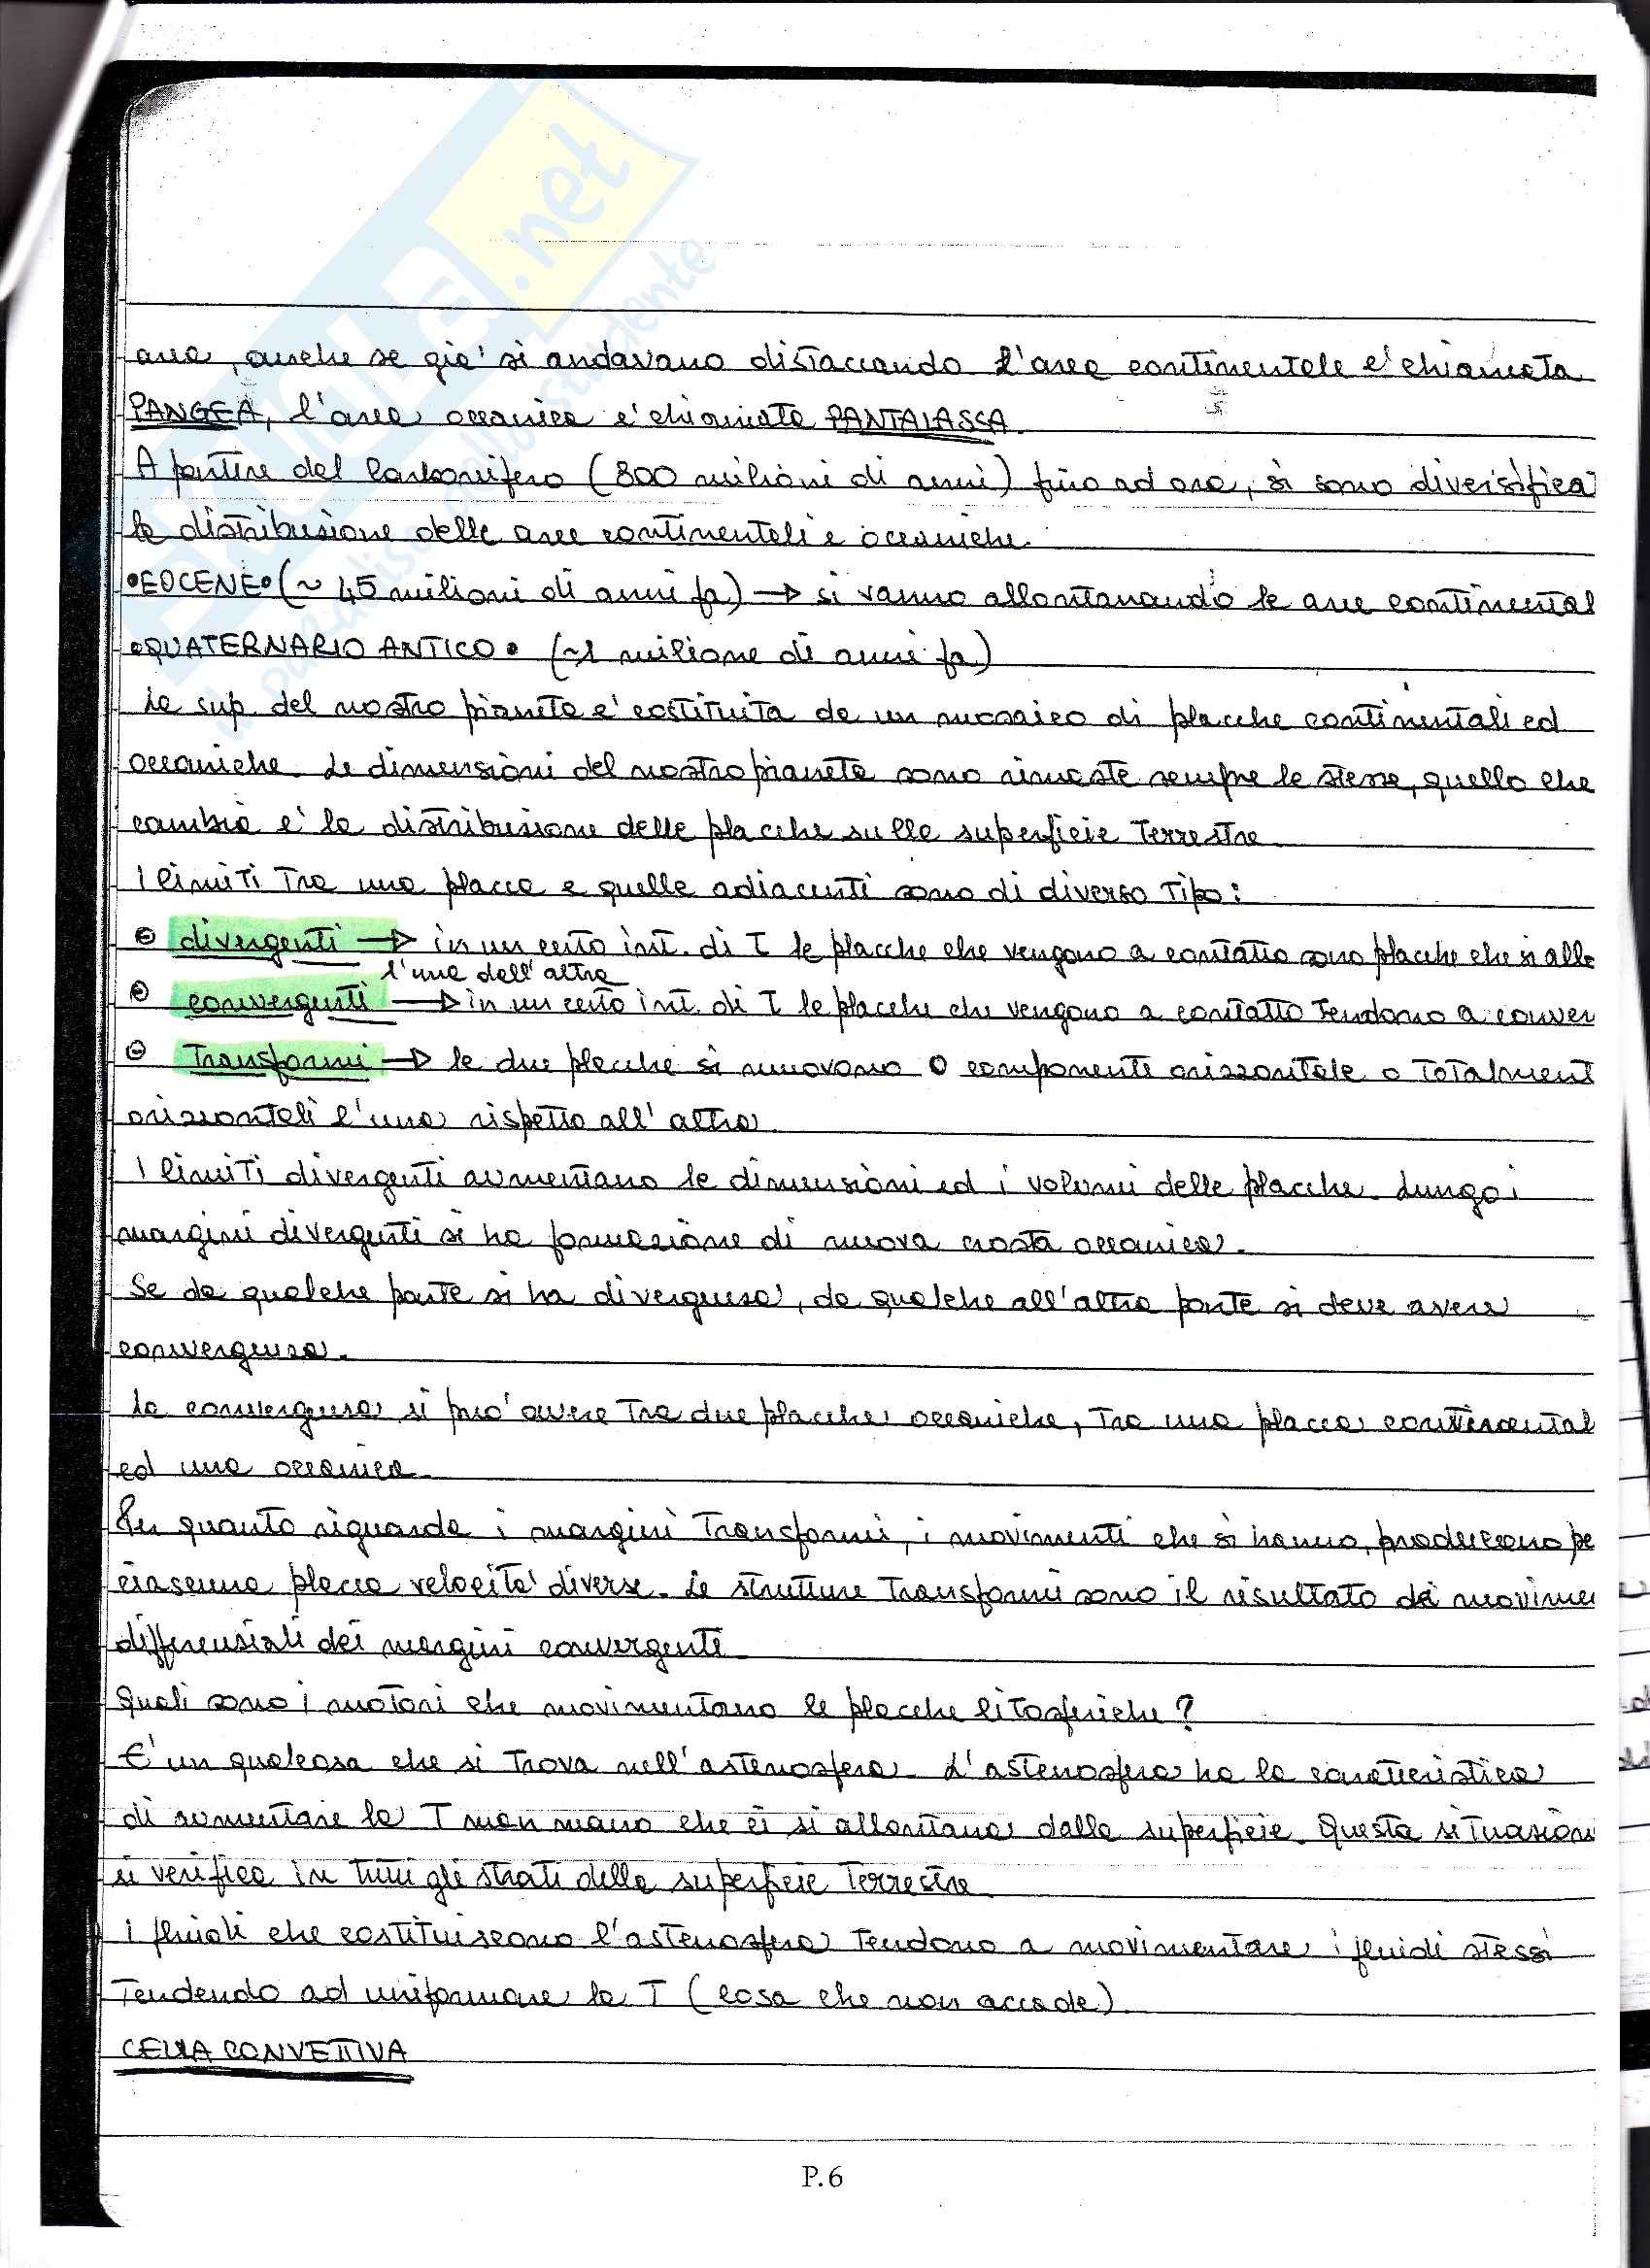 .net
area, anche se già si andavano distaccando l'area continentale e' chiamata
PANGEA, l'area oceanica e' chiamata PANTALASSA.
A partire dal Carbonifero (300 milioni di anni) fino ad ora, si sono diversifica
le distribuzione delle aree continentali e oceaniche.
•EOCENE• (~ 45 milioni di anni fa) → si vanno allontanando le aree continental
•QUATERNARIO ANTICO• (~1 milione di anni fa)
La sup. del nostro pianeta e' costituita da un mosaico di placche continentali ed
oceaniche. Le dimensioni del nostro pianeta sono rimaste sempre le stesse, quello che
cambia e' la distribuzione delle placche sulla superficie terrestre.
I limiti tra una placca e quelle adiacenti sono di diverso tipo:
divergenti → in un certo int. di T le placche che vengono a contatto sono placche che si allo
l'una dall'altra
convergenti → in un certo int. di T le placche che vengono a contatto tendono a conver
Transformi → le due placche si muovono o componente orizzontale o totalment
orizzontali l'una rispetto all'altra.
I limiti divergenti aumentano le dimensioni ed i volumi delle placche. Lungo i
margini divergenti si ha formazione di nuova crosta oceanica.
Se da qualche parte si ha divergenza, da qualche all'altra parte si deve avere
convergenza.
La convergenza si puo' avere tra due placche oceaniche, tra una placca continental
ed una oceanica.
Per quanto riguarda i margini Transformi, i movimenti che si hanno, producono pe
ciascuna placca velocita' diverse. Le strutture Transformi sono il risultato dei movime
differenziali dei margini convergente.
Quali sono i motori che movimentano le placche litosferiche?
E' un qualcosa che si trova nell'astenosfera. L'astenosfera ha la caratteristica
di aumentare la T man mano che ci si allontana dalla superficie. Questa situazion
si verifica in tutti gli strati della superficie terrestre.
I fluidi che costituiscono l'astenosfera tendono a movimentare i fluidi stessi
tendendo ad uniformare la T (cosa che non accade).
CELLA CONVETTIVA
P.6